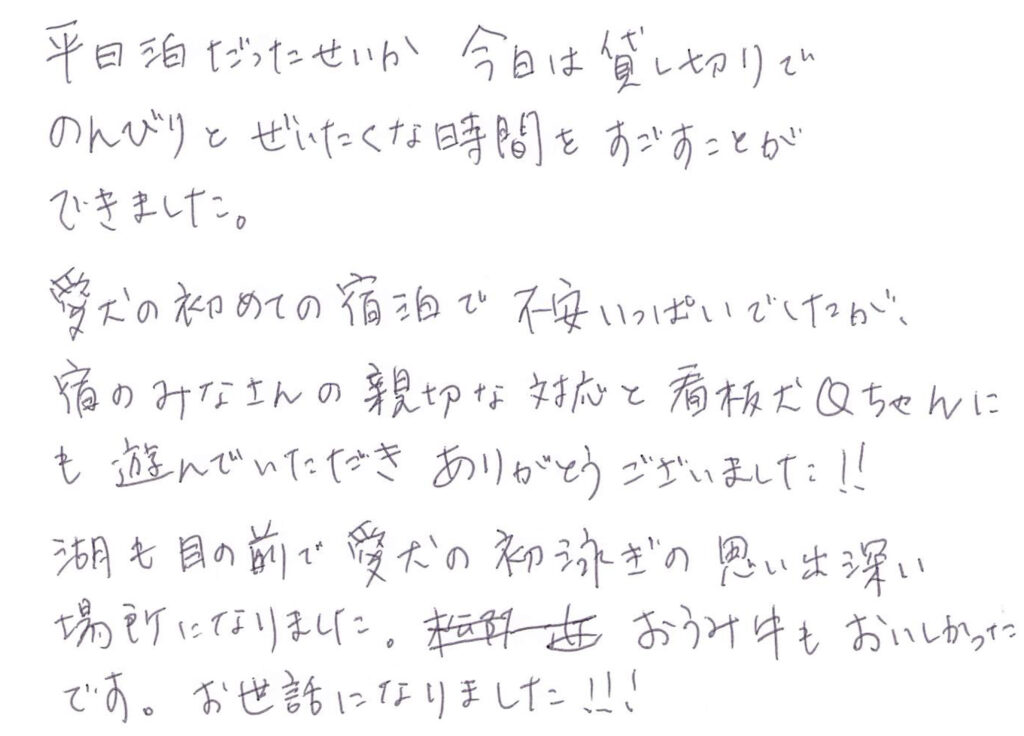 平日泊だったせいか 今日は貸し切りで
のんびりと ぜいたくな時間を すごすことが
できました。
愛犬の初めての宿泊で 不安いっぱいでしたが、
宿のみなさんの親切な対応と看板犬Qちゃんに
も遊んでいただき ありがとうございました!!
湖も目の前で愛犬の初泳ぎの思い出深い
場所になりました。 おうみ牛も おいしかった
です。 お世話になりました!!!